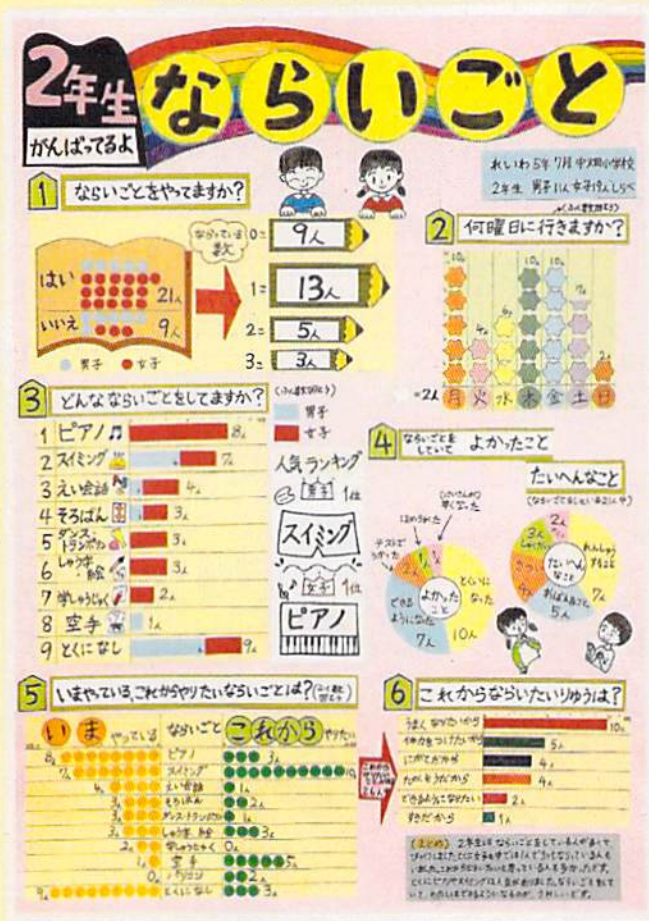 2年生
がんばってるよ
ならいごと
れいわ5年7月 中畑小学校
2年生 男子11人女子19人しらべ
1 ならいごとをやってますか?
はい 21人
いいえ 9人
男子 女子
ならっている数
0= 9人
1= 13人
2= 5人
3= 3人
2 何曜日に行きますか?
(ふく数回とう)
10人 4人 6人 10人 10人 7人 2人
=2人 月 火 水 木 金 土 日
3 どんなならいごとをしてますか?
(ふく数回とう)
男子
女子
1 ピアノ 8人
2 スイミング 7人
3 えい会話 4人
4 そろばん 3人
5 ダンス・トランポリン 3人
6 しゅう字・絵 3人
7 学しゅうじゅく 2人
8 空手 1人
9 とくになし 9人
人気ランキング
男子 1位
スイミング
女子 1位
ピアノ
4 ならいごとをしていて よかったこと
たいへんなこと
よかったこと
とくいになった
10人
できるようになった
7人
テストでうかった
2人
ほめられた
1人
(けいさんが)早くなった
1人
たいへんなこと
れんしゅうすること
7人
5人
4人
3人
2人
5 いまやっている、これからやりたいならいごとは?
いま やっている
ならいごと
これから やりたい
8人 ピアノ 3人
7人 スイミング 10人
4人 えい会話 1人
3人 そろばん 2人
3人 ダンス・トランポリン 1人
3人 しゅう字 絵 3人
2人 学しゅうじゅく 0人
1人 空手 5人
0人 パソコン 2人
9人 とくになし 3人
6 これからならいたいりゆうは?
うまくなりたいから 10人
体力をつけたいから 5人
にがてだから 4人
たのしそうだから 4人
できるようになりたい 2人
すきだから 1人
(まとめ) 2年生は ならいごとをしている人が多くて、